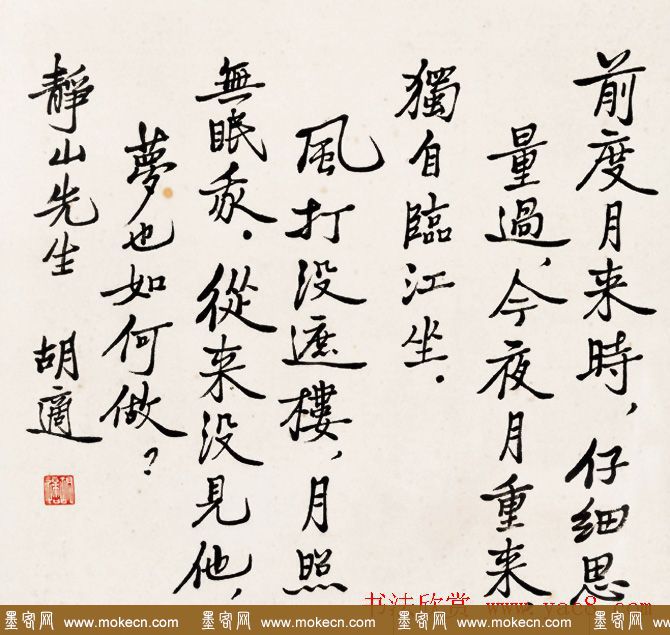 前度月来時，仔細思
量過，今夜月重来，
獨自臨江坐．
風打没遮樓，月照
無眠我．從来没見他，
夢也如何做？
靜山先生　胡適
书法欣赏 www.yac8.com
墨客网 www.mokecn.com 墨客网 www.mokecn.com 墨客网 www.mokecn.com